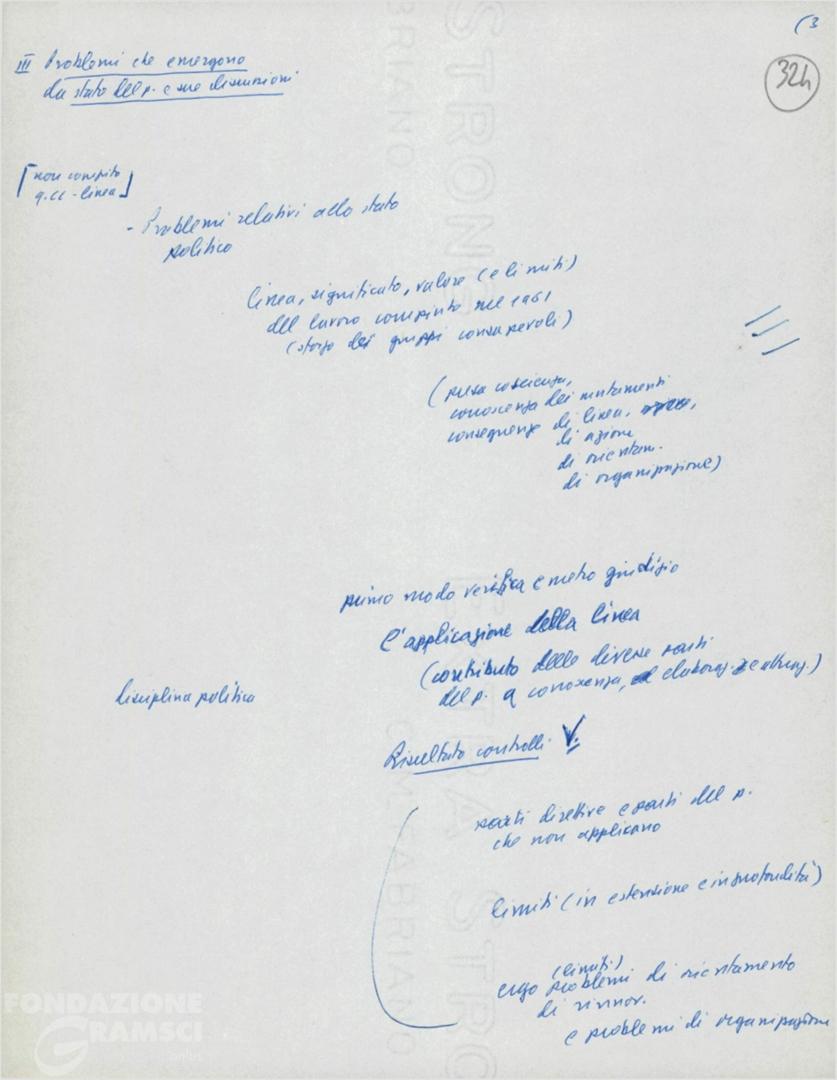 (3
324
III Problemi che emergono
da stato del p. e sue discussioni
[non compito
q. CC - linea]
- Problemi relativi allo stato
politico
linea, significato, valore (e limiti)
del lavoro compiuto nel 1961
(sforzo dei gruppi consapevoli)
(presa coscienza,
conoscenza dei mutamenti
conseguenze di linea,
di azione
di orientam.
di organizzazione)
primo modo verifica e metro giudizio
l'applicazione della linea
(contributo delle diverse parti
del p. a conoscenza, elaboraz. e attuaz.)
disciplina politica
Risultato controlli V.
parti direttive e parti del p.
che non applicano
limiti (in estensione e in profondità)
(limiti)
ergo problemi di orientamento
di rinnov.
e problemi di organizzazione
FONDAZIONE
GRAMSCI
onlus
STRONG
BRIANO
EXTRA STRO
CM FABRIANO